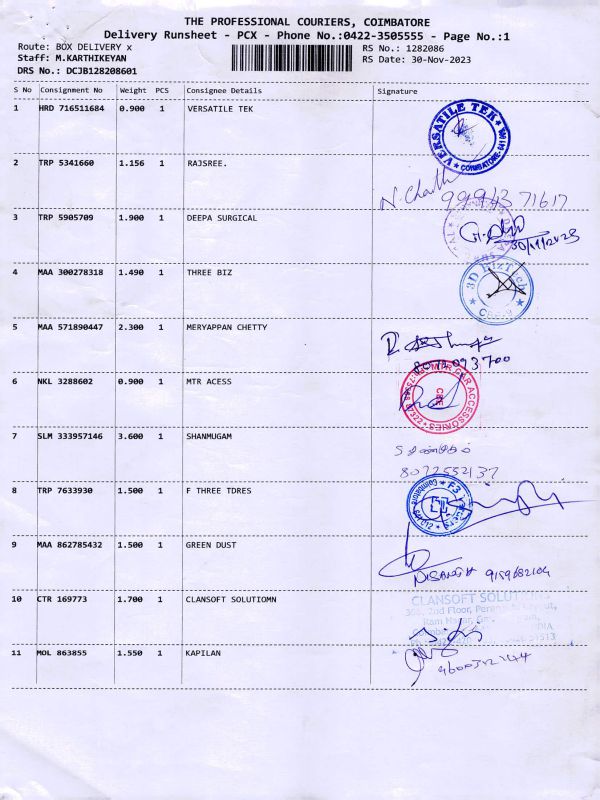 THE PROFESSIONAL COURIERS, COIMBATORE
Delivery Runsheet - PCX - Phone No.:0422-3505555 - Page No.:1
Route: BOX DELIVERY x
RS No.: 1282086
Staff: M.KARTHIKEYAN
RS Date: 30-Nov-2023
DRS No.: DCJB128208601
S No Consignment No Weight PCS Consignee Details Signature
1 HRD 716511684 0.900 1 VERSATILE TEK
VERSATILE TEK
COIMBATORE-641
2 TRP 5341660 1.156 1 RAJSREE.
9994371617
3 TRP 5905709 1.900 1 DEEPA SURGICAL
30/11/2023
4 MAA 300278318 1.490 1 THREE BIZ
3D BizTech
5 MAA 571890447 2.300 1 MERYAPPAN CHETTY
6 NKL 3288602 0.900 1 MTR ACESS
CAR ACCESSORIES
CBE
7 SLM 333957146 3.600 1 SHANMUGAM
8072552137
8 TRP 7633930 1.500 1 F THREE TDRES
F3
9 MAA 862785432 1.500 1 GREEN DUST
10 CTR 169773 1.700 1 CLANSOFT SOLUTIOMN
CLANSOFT SOLUTIONS
2nd Floor,
Ram Nagar,
11 MOL 863855 1.550 1 KAPILAN